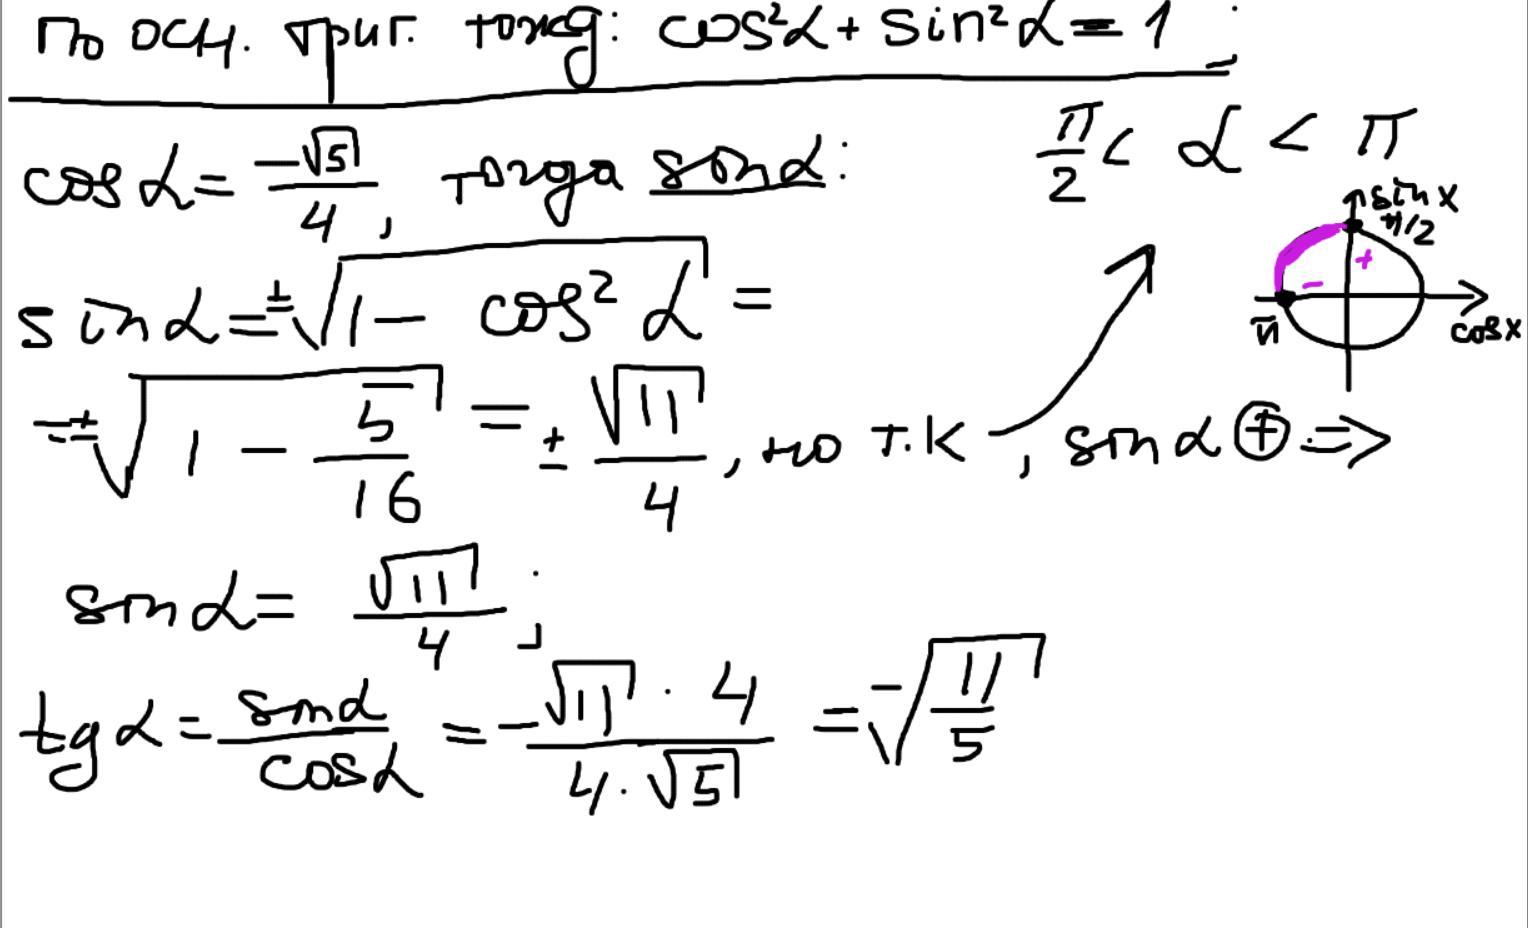 По осн. триг. тожд: cos²α + sin²α = 1;
cos α = -√5/4, тогда sin α:
π/2 < α < π
sin x
π/2
+
-
π
cos x
sin α = ±√(1 - cos² α) =
= ±√(1 - 5/16) = ± √11/4, но т.к , sin α ⊕ ⇒
sin α = √11/4;
tg α = sin α/cos α = - √11 · 4/4 · √5 = -√(11/5)